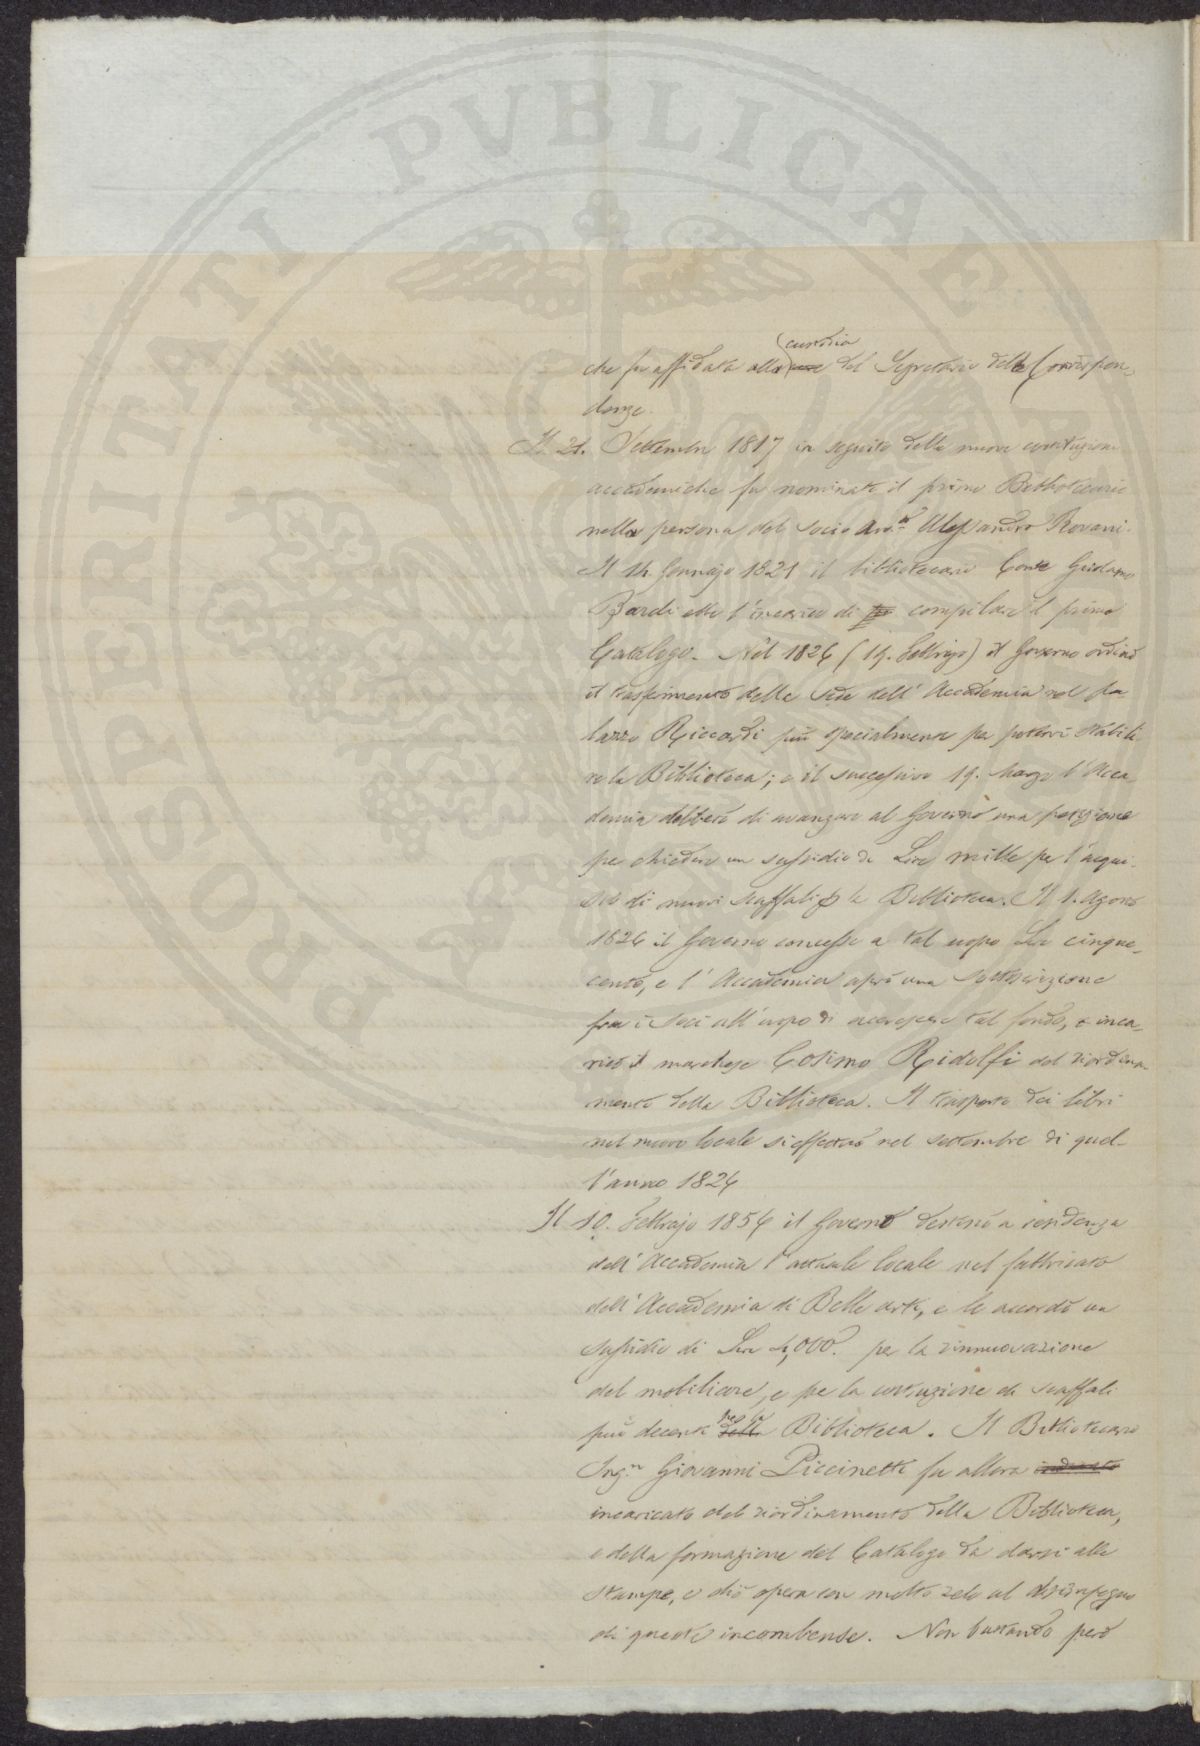 PROSPERITATI PVBLICAE
custodia
che fu affidata alla del Segretario delle Corrispon-
denze.
Il 21. Settembre 1817 in seguito delle nuove costituzioni
accademiche fu nominato il primo Bibliotecario
nella persona del socio Alessandro Rovani.
Il 14. Gennajo 1821 il bibliotecario Conte Girolamo
Bardi ebbe l'incarico di compilare il primo
Catalogo. Nel 1824 (19. Febbrajo) il Governo ordinò
il trasferimento della sede dell'Accademia nel pa-
lazzo Riccardi più specialmente per potervi stabili-
re la Biblioteca; e il successivo 19. Marzo l'Acca-
demia deliberò di avanzare al Governo una petizione
per chiedere un sussidio di Lire mille per l'acqui-
sto di nuovi scaffali p la Biblioteca. Il 1. Agosto
1824 il Governo concesse a tal uopo Lire cinque-
cento, e l'Accademia aprì una sottoscrizione
fra i Soci all'uopo di accrescere tal fondo, e inca-
ricò il marchese Cosimo Ridolfi del riordina-
mento della Biblioteca. Il trasporto dei libri
nel nuovo locale si effettuò nel settembre di quel-
l'anno 1824
Il 10. Febbrajo 1854 il Governo destinò a residenza
dell'Accademia l'attuale locale nel fabbricato
dell'Accademia di Belle arti, e le accordò un
sussidio di Lire 4,000. per la rinnuovazione
del mobiliare, e per la costruzione di scaffali
più decenti per la Biblioteca. Il Bibliotecario
Ing.re Giovanni Piccinetti fu allora
incaricato del riordinamento della Biblioteca,
e della formazione del Catalogo da darsi alle
stampe, e diè opera con molto zelo al disimpegno
di queste incombenze. Non bastando però